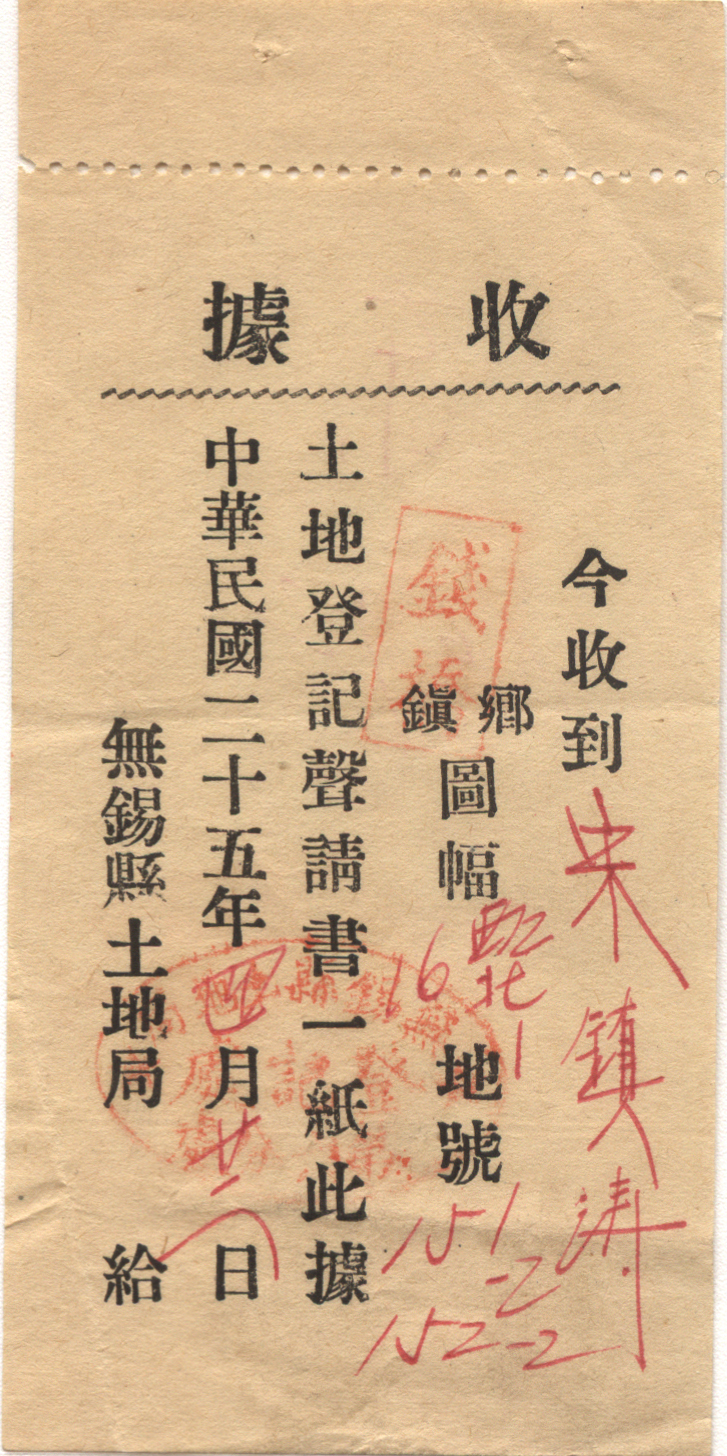 收據
今收到朱鎮濤
錢橋
鄉鎮圖幅 16 1 地號 151-2 152-2
土地登記聲請書一紙此據
中華民國二十五年四月廿六日
無錫縣土地局給